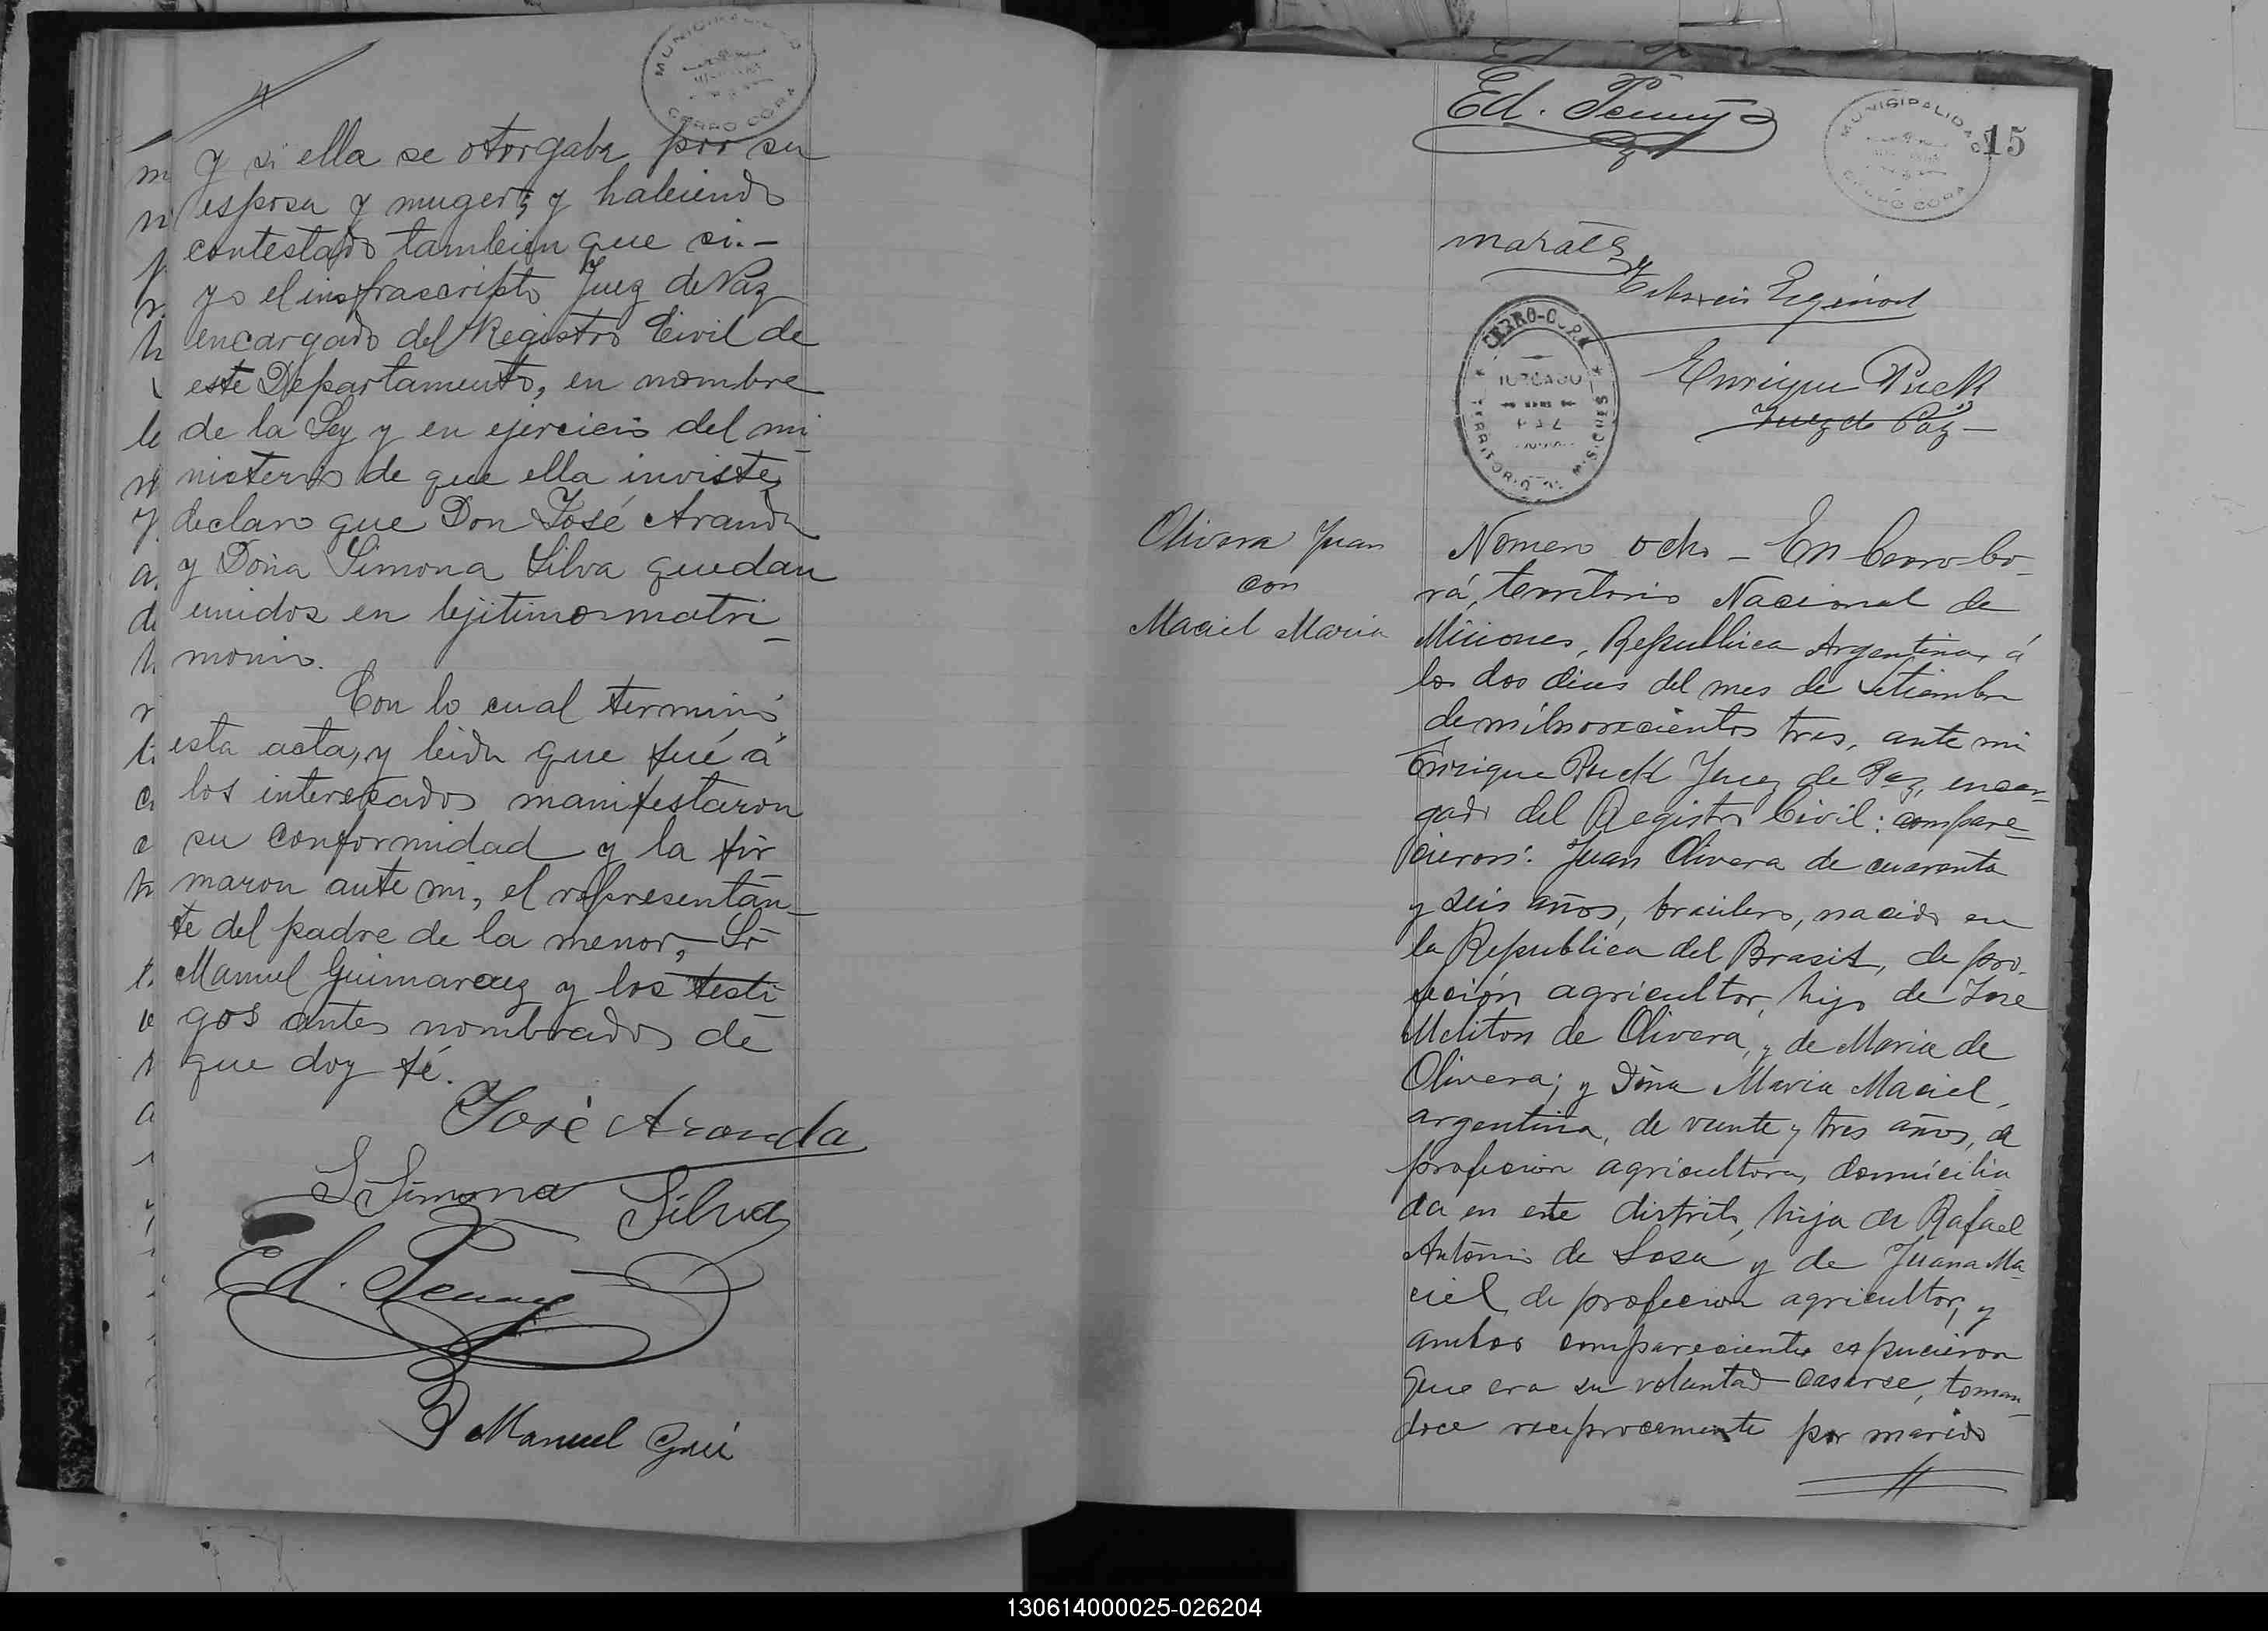 MUNICIPALIDAD
CERRO CORA
y si ella se otorgaba por su
esposa y muger; y habiendo
contestado tambien que si.–
yo el infrascripto Juez de Paz
encargado del Registro Civil de
este Departamento, en nombre
de la Ley y en ejercicio del mi
nisterio de que ella inviste,
declaro que Don José Aranda
y Doña Simona Silva quedan
unidos en lejitimo matri
monio.
Con lo cual terminó
esta acta, y leida que fué á
los interesados manifestaron
su conformidad y la fir
maron ante mi, el representan–
te del padre de la menor, Sr
Manuel Guimaraez y los testi
gos antes nombrados de
que doy fé.
José Aranda
Simona Silva
Ed. Penny
Manuel Gui
Ed. Penny
MUNISIPALIDAD
CERRO CORA
15
maraes
CERRO-CORA
JUZGADO
DE
PAZ
TERRITORIO
MISIONES
Enrique Puck
Juez de Paz
Olivera Juan
con
Maciel Maria
Nomero ocho – En Cerro Co–
rá, territorio Nacional de
Misiones, Republica Argentina, á
los dos dias del mes de Setiembre
de mil novecientos tres, ante mi
Enrique Puck Juez de Paz, encar–
gado del Registro Civil: compare–
cieron: Juan Olivera de cuarenta
y seis años, brasilero, nacido en
la Republica del Brasil, de pro.
fecion agricultor, hijo de Jose
Meliton de Olivera, y de Maria de
Olivera; y Doña Maria Maciel,
argentina, de veinte y tres años, de
profecion agricultora, domicilia
da en este distrito, hija de Rafael
Antonio de Sosa y de Juana Ma–
ciel, de profecion agricultor, y
ambos comparecientes espucieron
que era su voluntad casarse, toman–
doce reciprocamente por marido
130614000025-026204